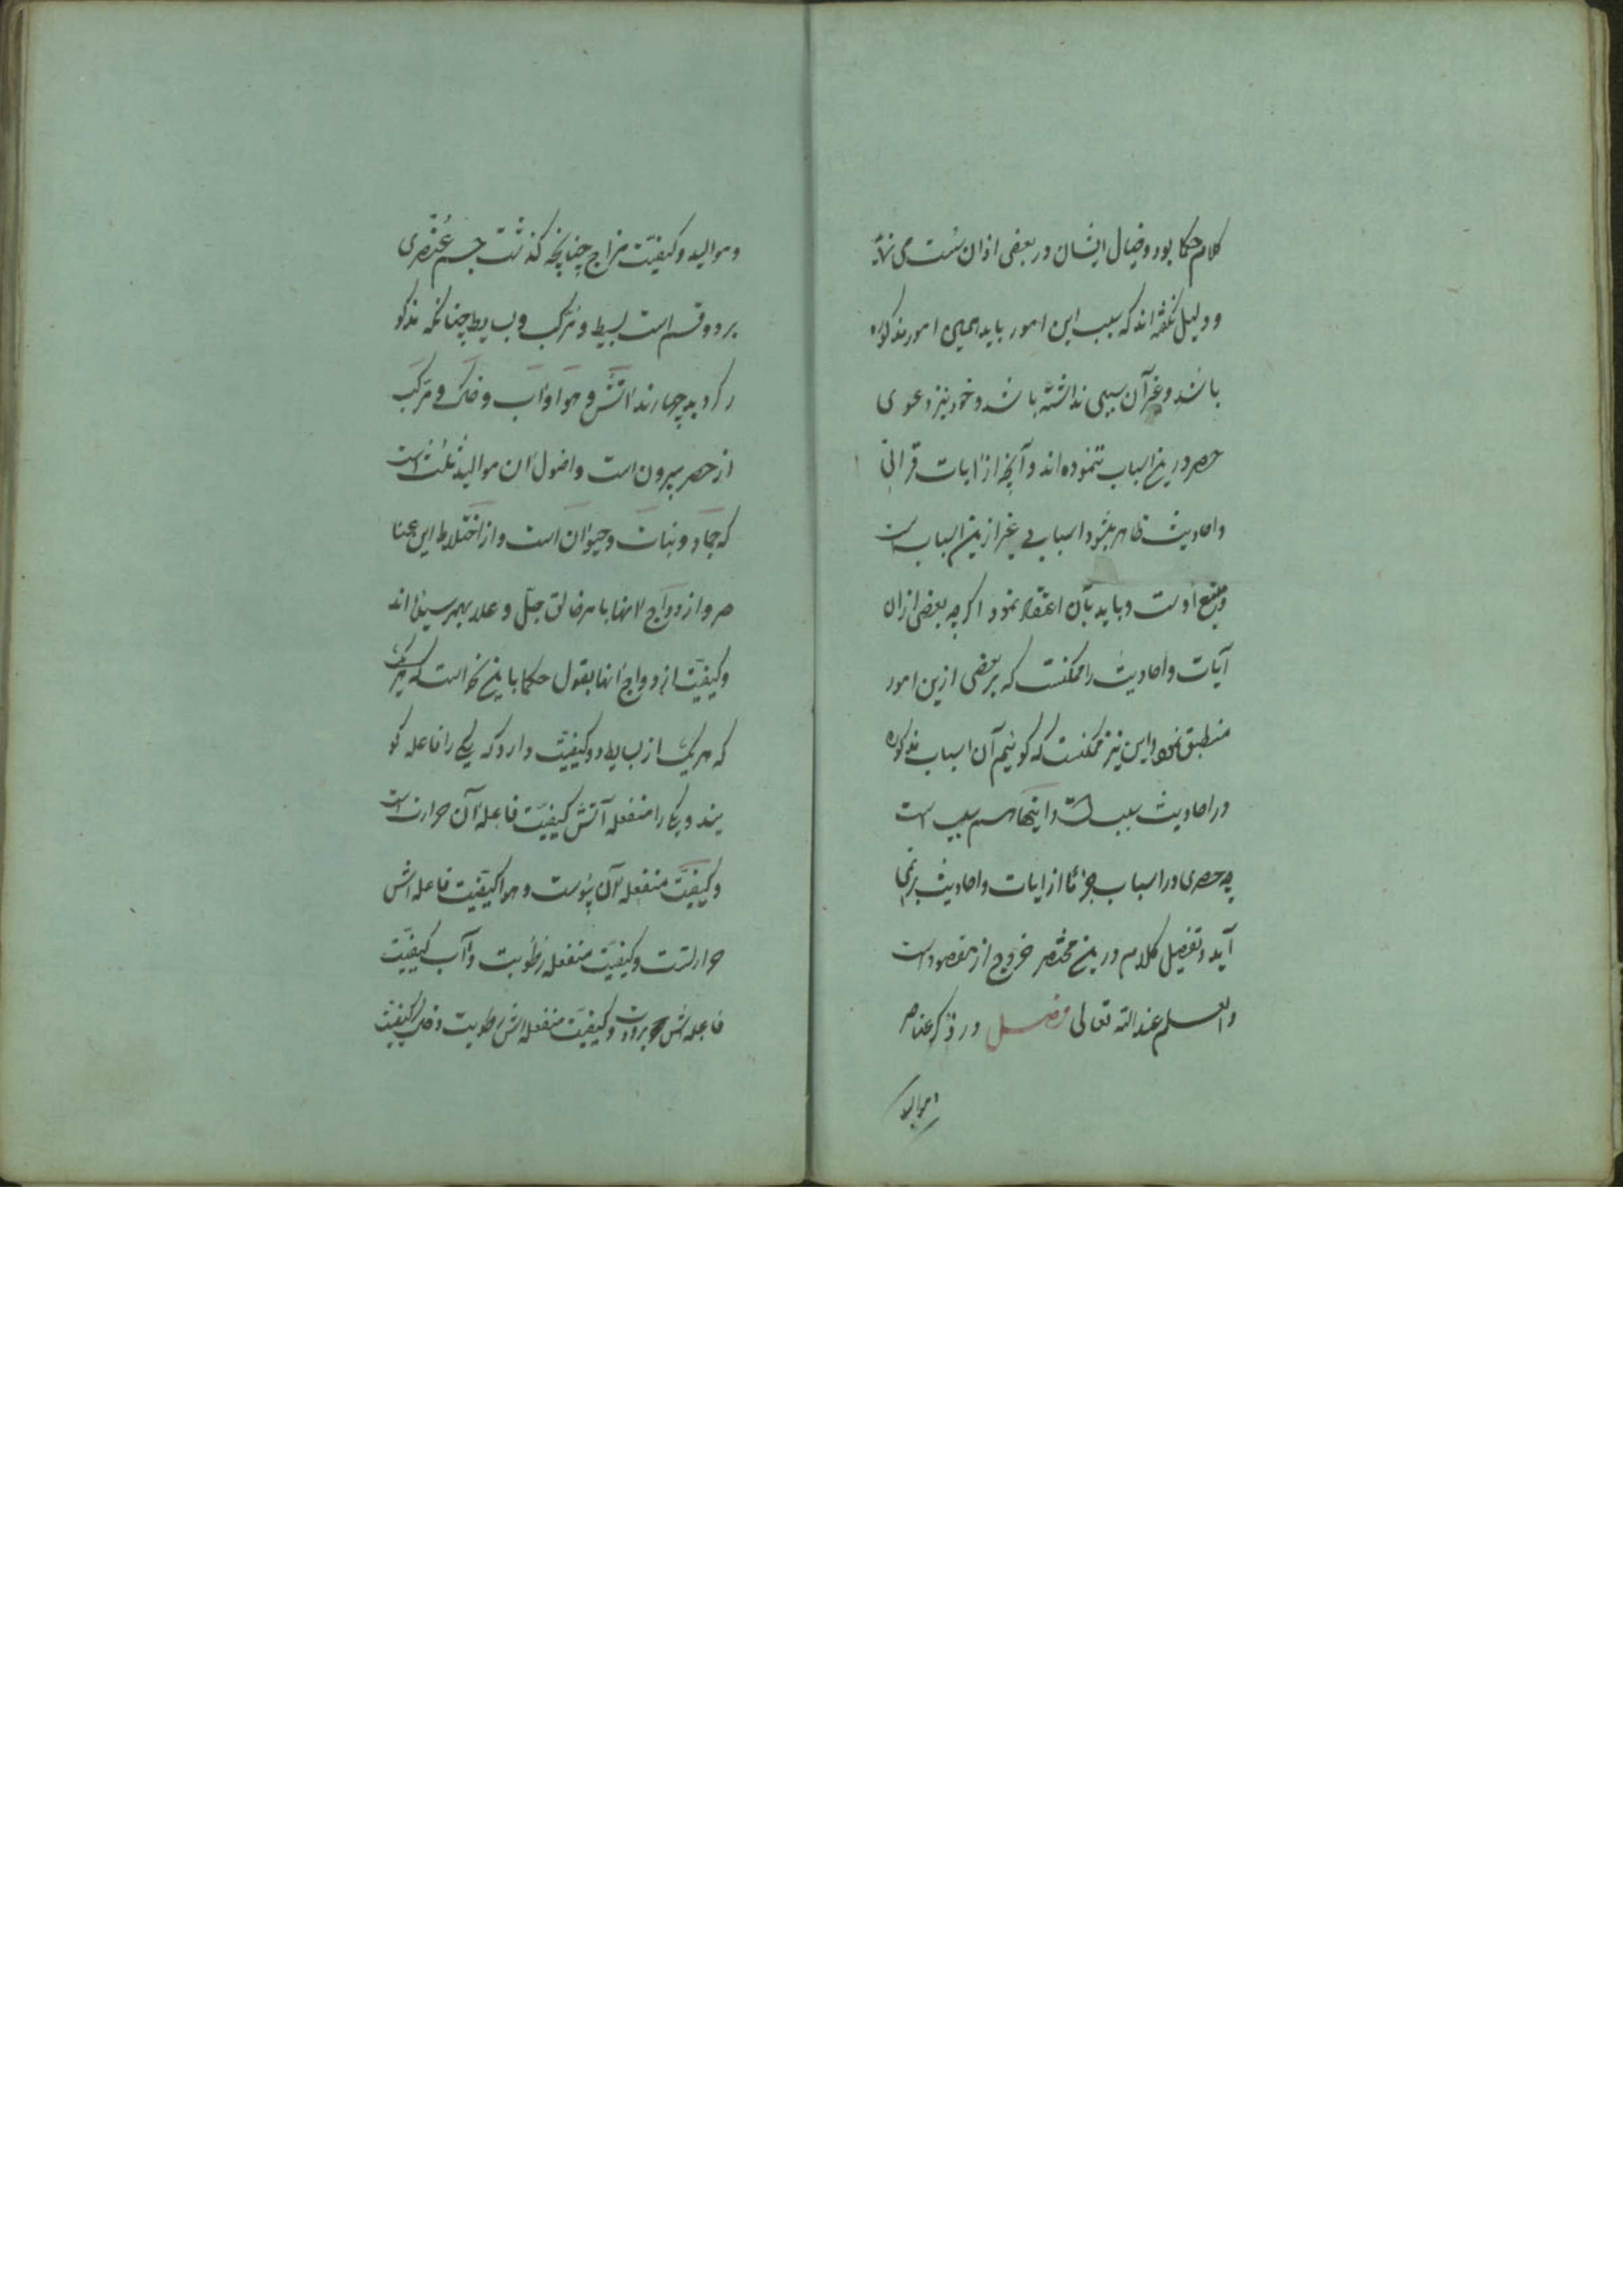 کلام حکما بود و خیال ایشان در بعضی ازان سست می نماید
و دلیل نگفته اند که سبب این امور باید همین امور مذکوره
باشد و غیر آن سببی نداشته باشد و خود نیز دعوی
حصر درین اسباب ننموده اند و آنچه از ایات قرانی
و احادیث ظاهر میشود اسبابی غیر ازین اسباب است
و متبع اوست و باید بآن اعتقاد نمود اکرچه بعضی ازان
آیات و احادیث را ممکنست که بر بعضی ازین امور
منطبق نمود و این نیز ممکنست که کوئیم آن اسباب مذکوره
در احادیث سبب است و اینها هم سبب است
چه حصری در اسباب جزئا از ایات و احادیث برنمی
آید و تفصیل کلام درین مختصر خروج از مقصود است
والعلم عند الله تعالی فصل در ذکر عناصر
و موالید
و موالید و کیفیت مزاج چنانچه کذشت جسم عنصری
بر دو قسم است بسیط و مرکب و بسایط چنانکه مذکو
ر کردید چهارند اتش و هوا و اب و خاک و مرکب
از حصر بیرون است و اصول ان موالید ثلث است
که جماد و نبات و حیوان است و از اختلاط این عنا
صر و ازدواج انها بامر خالق جل و علا بهمرسیده اند
و کیفیت ازدواج انها بقول حکما باین نحو است
که هر یک از بسایط دو کیفیت دارد که یکی را فاعله کو
یند و یکی را منفعله آتش کیفیت فاعله آن حرارت است
و کیفیت منفعله آن یبوست و هوا کیفیت فاعله اش
حرارتست و کیفیت منفعله رطوبت و آب کیفیت
فاعله اش برودت و کیفیت منفعله اش رطوبت و خاک کیفیت